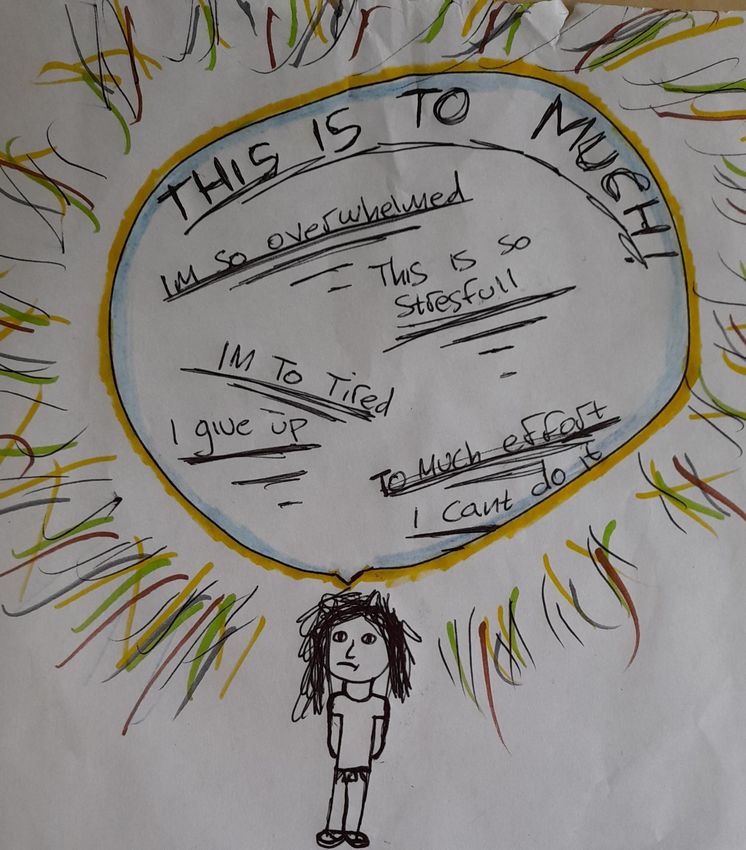 THIS IS TO MUCH!
IM so overwhelmed
THis is so
Stresfull
IM To Tired
I give up
To Much effort
I cant do it